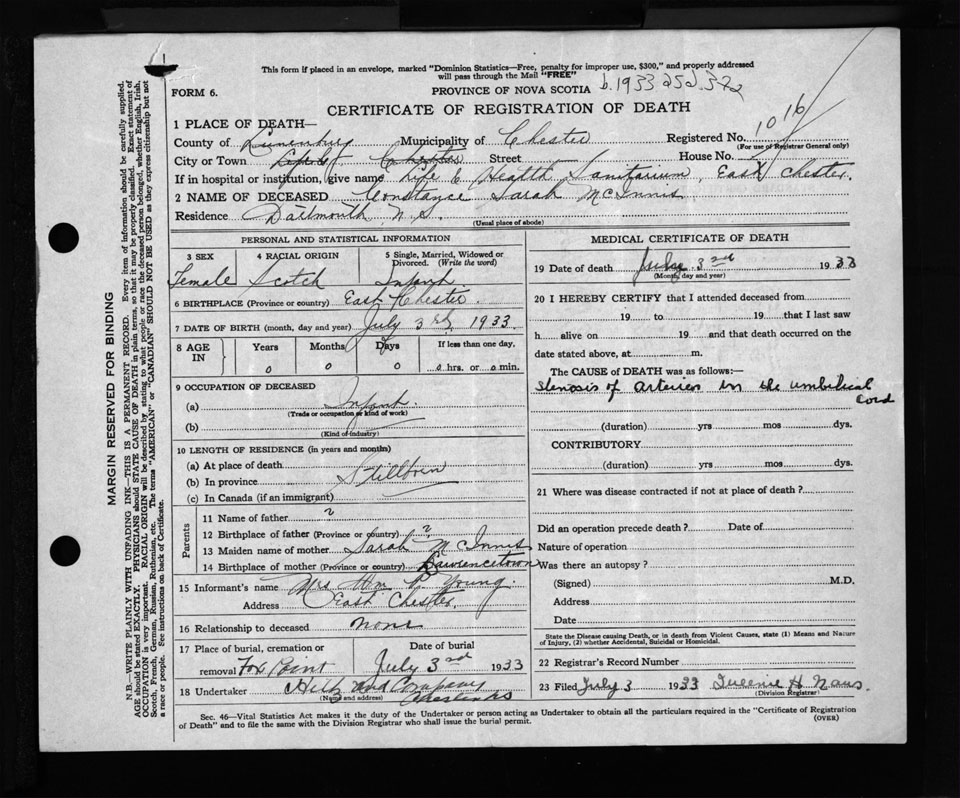 This form if placed in an envelope, marked "Dominion Statistics—Free, penalty for improper use, $300," and properly addressed
will pass through the Mail "FREE"
FORM 6.
PROVINCE OF NOVA SCOTIA
b.1933
CERTIFICATE OF REGISTRATION OF DEATH
1016
1 PLACE OF DEATH—
County of Lunenburg Municipality of Chester Registered No.
(For use of Registrar General only)
City or Town Chester Street House No.
If in hospital or institution, give name Life & Health Sanitarium, East Chester.
2 NAME OF DECEASED Constance Sarah McInnis
Residence Dartmouth N.S.
(Usual place of abode)
PERSONAL AND STATISTICAL INFORMATION
3 SEX 4 RACIAL ORIGIN 5 Single, Married, Widowed or
Divorced. (Write the word)
Female Scotch Infant
6 BIRTHPLACE (Province or country) East Chester.
7 DATE OF BIRTH (month, day and year) July 3rd, 1933.
8 AGE IN Years Months Days If less than one day,
0 0 0 0 hrs. or 0 min.
9 OCCUPATION OF DECEASED
(a) Infant
(Trade or occupation or kind of work)
(b)
(Kind of industry)
10 LENGTH OF RESIDENCE (in years and months)
(a) At place of death
(b) In province Stillborn
(c) In Canada (if an immigrant)
Parents
11 Name of father ?
12 Birthplace of father (Province or country) ?
13 Maiden name of mother Sarah McInnis
14 Birthplace of mother (Province or country) Lawrencetown
15 Informant's name Mrs Wm P. Young.
Address East Chester.
16 Relationship to deceased none
17 Place of burial, cremation or Date of burial
removal Fox Point July 3rd 1933
18 Undertaker and Company
(Name and address) Chester NS
MEDICAL CERTIFICATE OF DEATH
19 Date of death July 3rd 1933
(Month, day and year)
20 I HEREBY CERTIFY that I attended deceased from
19 to 19 that I last saw
h alive on 19 and that death occurred on the
date stated above, at m.
The CAUSE of DEATH was as follows:—
Stenosis of arteries in the umbilical
cord
(duration) yrs mos dys.
CONTRIBUTORY
(duration) yrs mos dys.
21 Where was disease contracted if not at place of death?
Did an operation precede death? Date of
Nature of operation
Was there an autopsy?
(Signed) M.D.
Address
Date
State the Disease causing Death, or in death from Violent Causes, state (1) Means and Nature
of Injury, (2) whether Accidental, Suicidal or Homicidal.
22 Registrar's Record Number
23 Filed July 3 1933 H
(Division Registrar)
Sec. 46—Vital Statistics Act makes it the duty of the Undertaker or person acting as Undertaker to obtain all the particulars required in the "Certificate of Registration
of Death" and to file the same with the Division Registrar who shall issue the burial permit. (OVER)
MARGIN RESERVED FOR BINDING
N.B.—WRITE PLAINLY WITH UNFADING INK—THIS IS A PERMANENT RECORD. Every item of information should be carefully supplied.
AGE should be stated EXACTLY. PHYSICIANS should STATE CAUSE OF DEATH in plain terms, so that it may be properly classified. Exact statement of
OCCUPATION is very important. RACIAL ORIGIN will be described by stating to what people or race the deceased person belonged, whether English, Irish,
Scotch, French, German, Russian, Ruthenian, etc. The terms "AMERICAN" or "CANADIAN" SHOULD NOT BE USED as they express citizenship but not
a race or people. See instructions on back of Certificate.